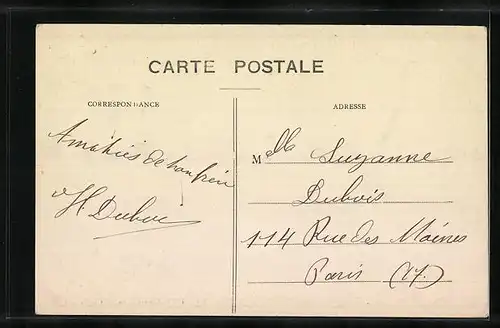 CARTE POSTALE
CORRESPONDANCE
Amitiés de ton frère
H Dubois
ADRESSE
Melle Suzanne
Dubois
114 Rue des Moines
Paris (17.)